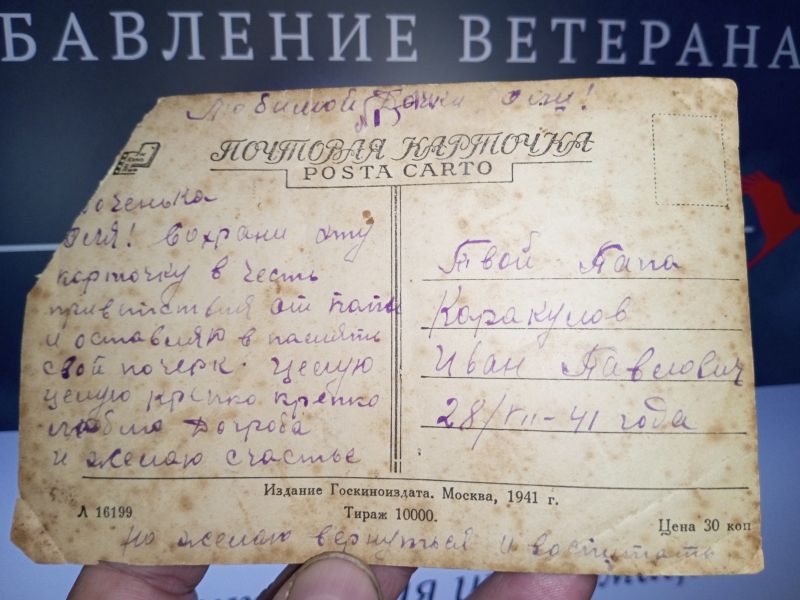 БАВЛЕНИЕ ВЕТЕРАНА
Любимой Дочки Оли!
ПОЧТОВАЯ КАРТОЧКА
POSTA CARTO
доченька
Оля! Сохрани эту
карточку в честь
приветствия от папы
и оставляю в память
свой почерк. Целую
целую крепко крепко
люблю До гроба
и желаю счастье
Твой Папа
Каракулов
Иван Павлович
28/VII-41 года
Издание Госкиноиздата. Москва, 1941 г.
Л 16199
Тираж 10000.
Цена 30 коп
но желаю вернуться и воспитать